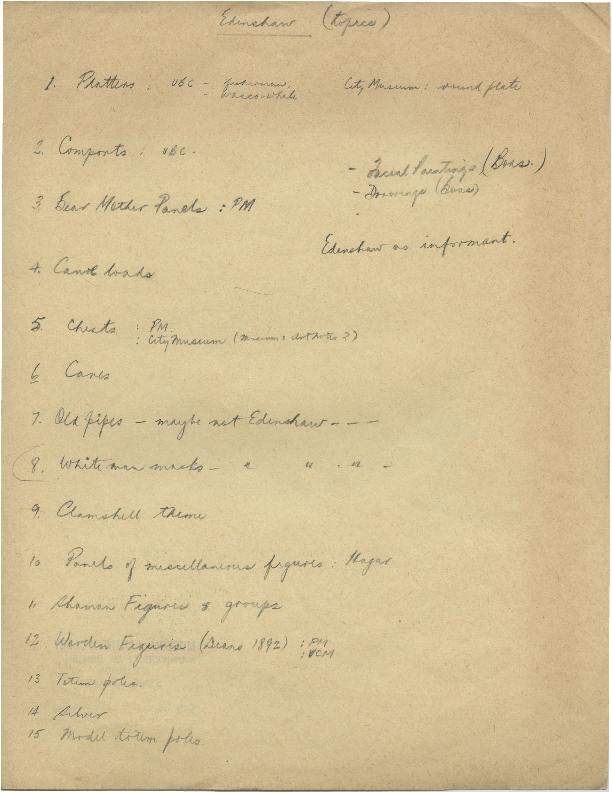 Edenshaw (topics)
1. Platters : UBC - fisherman. City Museum : round plate
- Wasco-whale
2. Comports : UBC.
- Facial Paintings (Boas.)
- Drawings (Boas)
3. Bear Mother Panels : PM
Edenshaw as informant.
4. Canoe loads
5. Chests : PM.
: City Museum (museum : 2)
6 Canes
7. Old pipes - maybe not Edenshaw - - -
8. White man masks - " " " -
9. Clamshell theme
10 Panels of miscellaneous figures : Hagar
11 Shaman Figures & groups
12 Wooden Figures (Deans 1892) : PM
: VCM
13 Totem poles.
14 Silver
15 Model totem poles